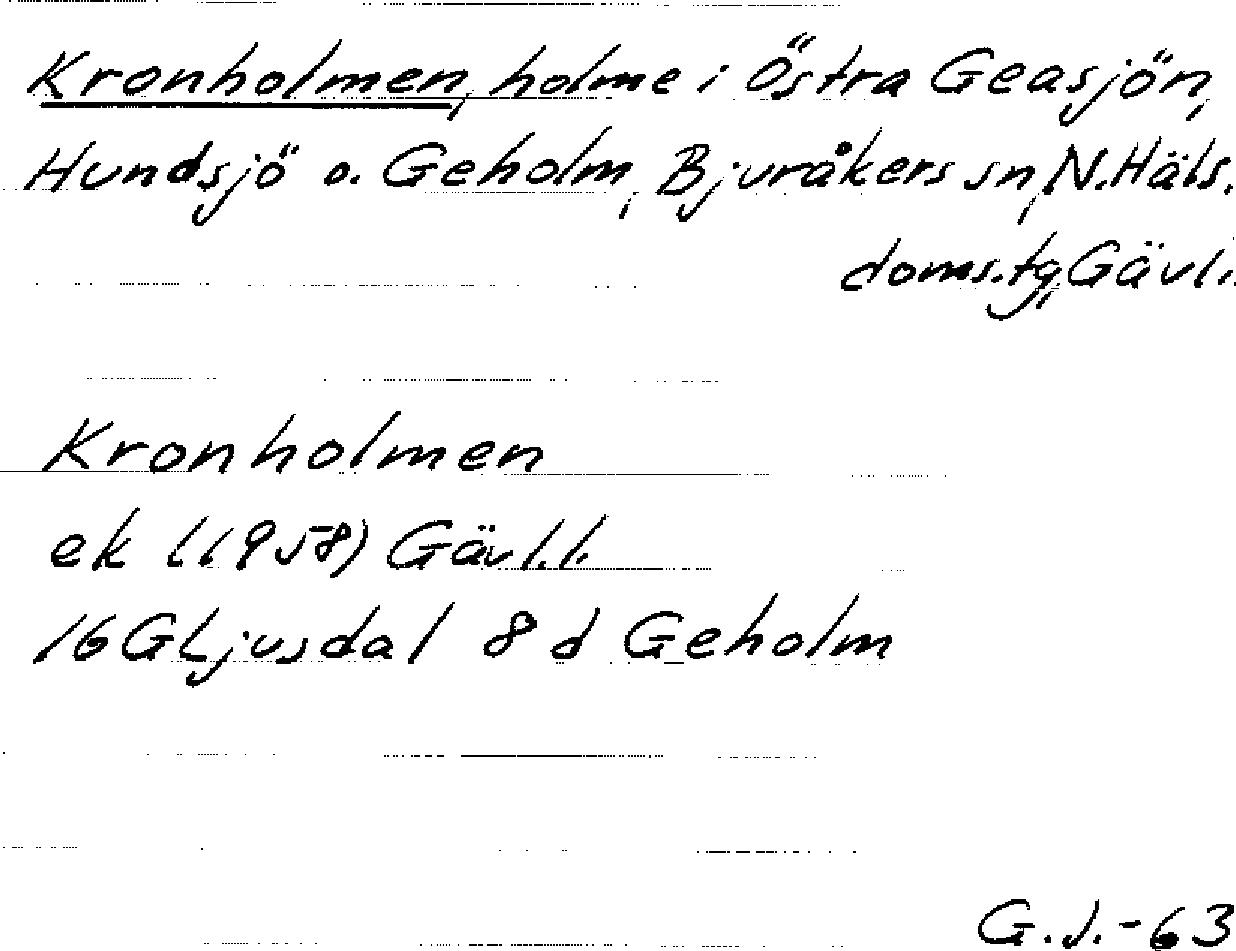 Kronholmen, holme i Östra Geasjön,
Hundsjö o. Geholm, Bjuråkers sn, N. Häls.
doms.tg, Gävl.
Kronholmen
ek (1958) Gävl.l.
16G Ljusdal 8 d Geholm
G.J.-63